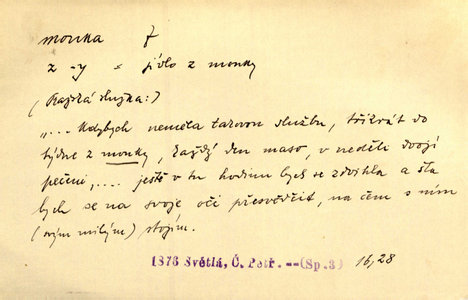 mouka f
z -y = jídlo z mouky
(Pražská služka:)
„... Kdybych neměla takovou službu, třikrát do
týdne z mouky, každý den maso, v neděli dvojí
pečeni,... ještě v tu hodinu bych se zdvihla a šla
bych se na svoje oči přesvědčit, na čem s ním
(svým milým) stojím.
1876 Světlá, Č. Petř. --(Sp.3) 16,28